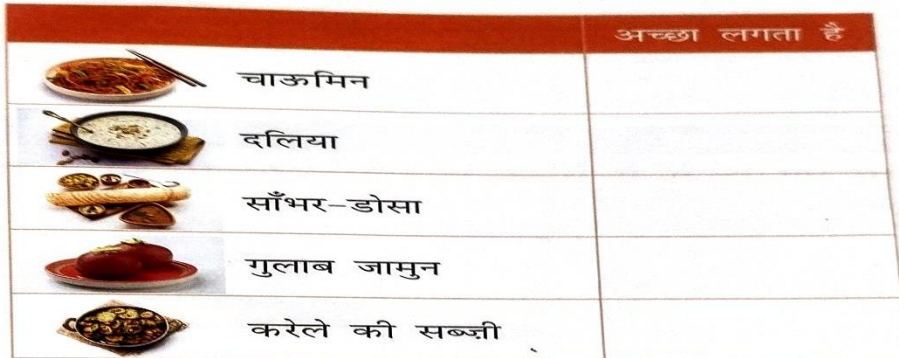 अच्छा लगता है
चाऊमिन
दलिया
साँभर–डोसा
गुलाब जामुन
करेले की सब्ज़ी